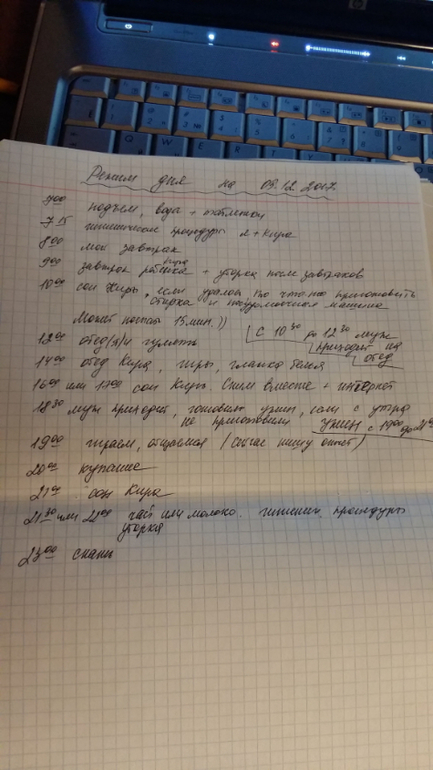 Режим дня на 09.12.2017
7 00 подъем, вода + таблетки
7 15 гигиенические процедуры я + Кира
8 00 мой завтрак
9 00 завтрак ребенка Кира + уборка после завтраков
10 00 сон Киры, если удалось то что-то приготовить
стирка и посудомоечная машина
Может поспать 15 мин. ))
С 10 30 до 12 30 муж
приходит на
обед
12 00 обед/я/и гулять
14 00 обед Кира, игры, глажка белья
16 00 или 17 00 сон Киры. Спим вместе + интернет
18 30 муж приходит, готовим ужин, если с утра
не приготовили
Ужин с 19 00 до 21 00
19 00 играем, общаемся (сейчас пишу отчет)
20 00 купание
21 00 сон Кира
21 30 или 22 00 чай или молоко. гигиенич. процедуры
уборка
23 00 спать